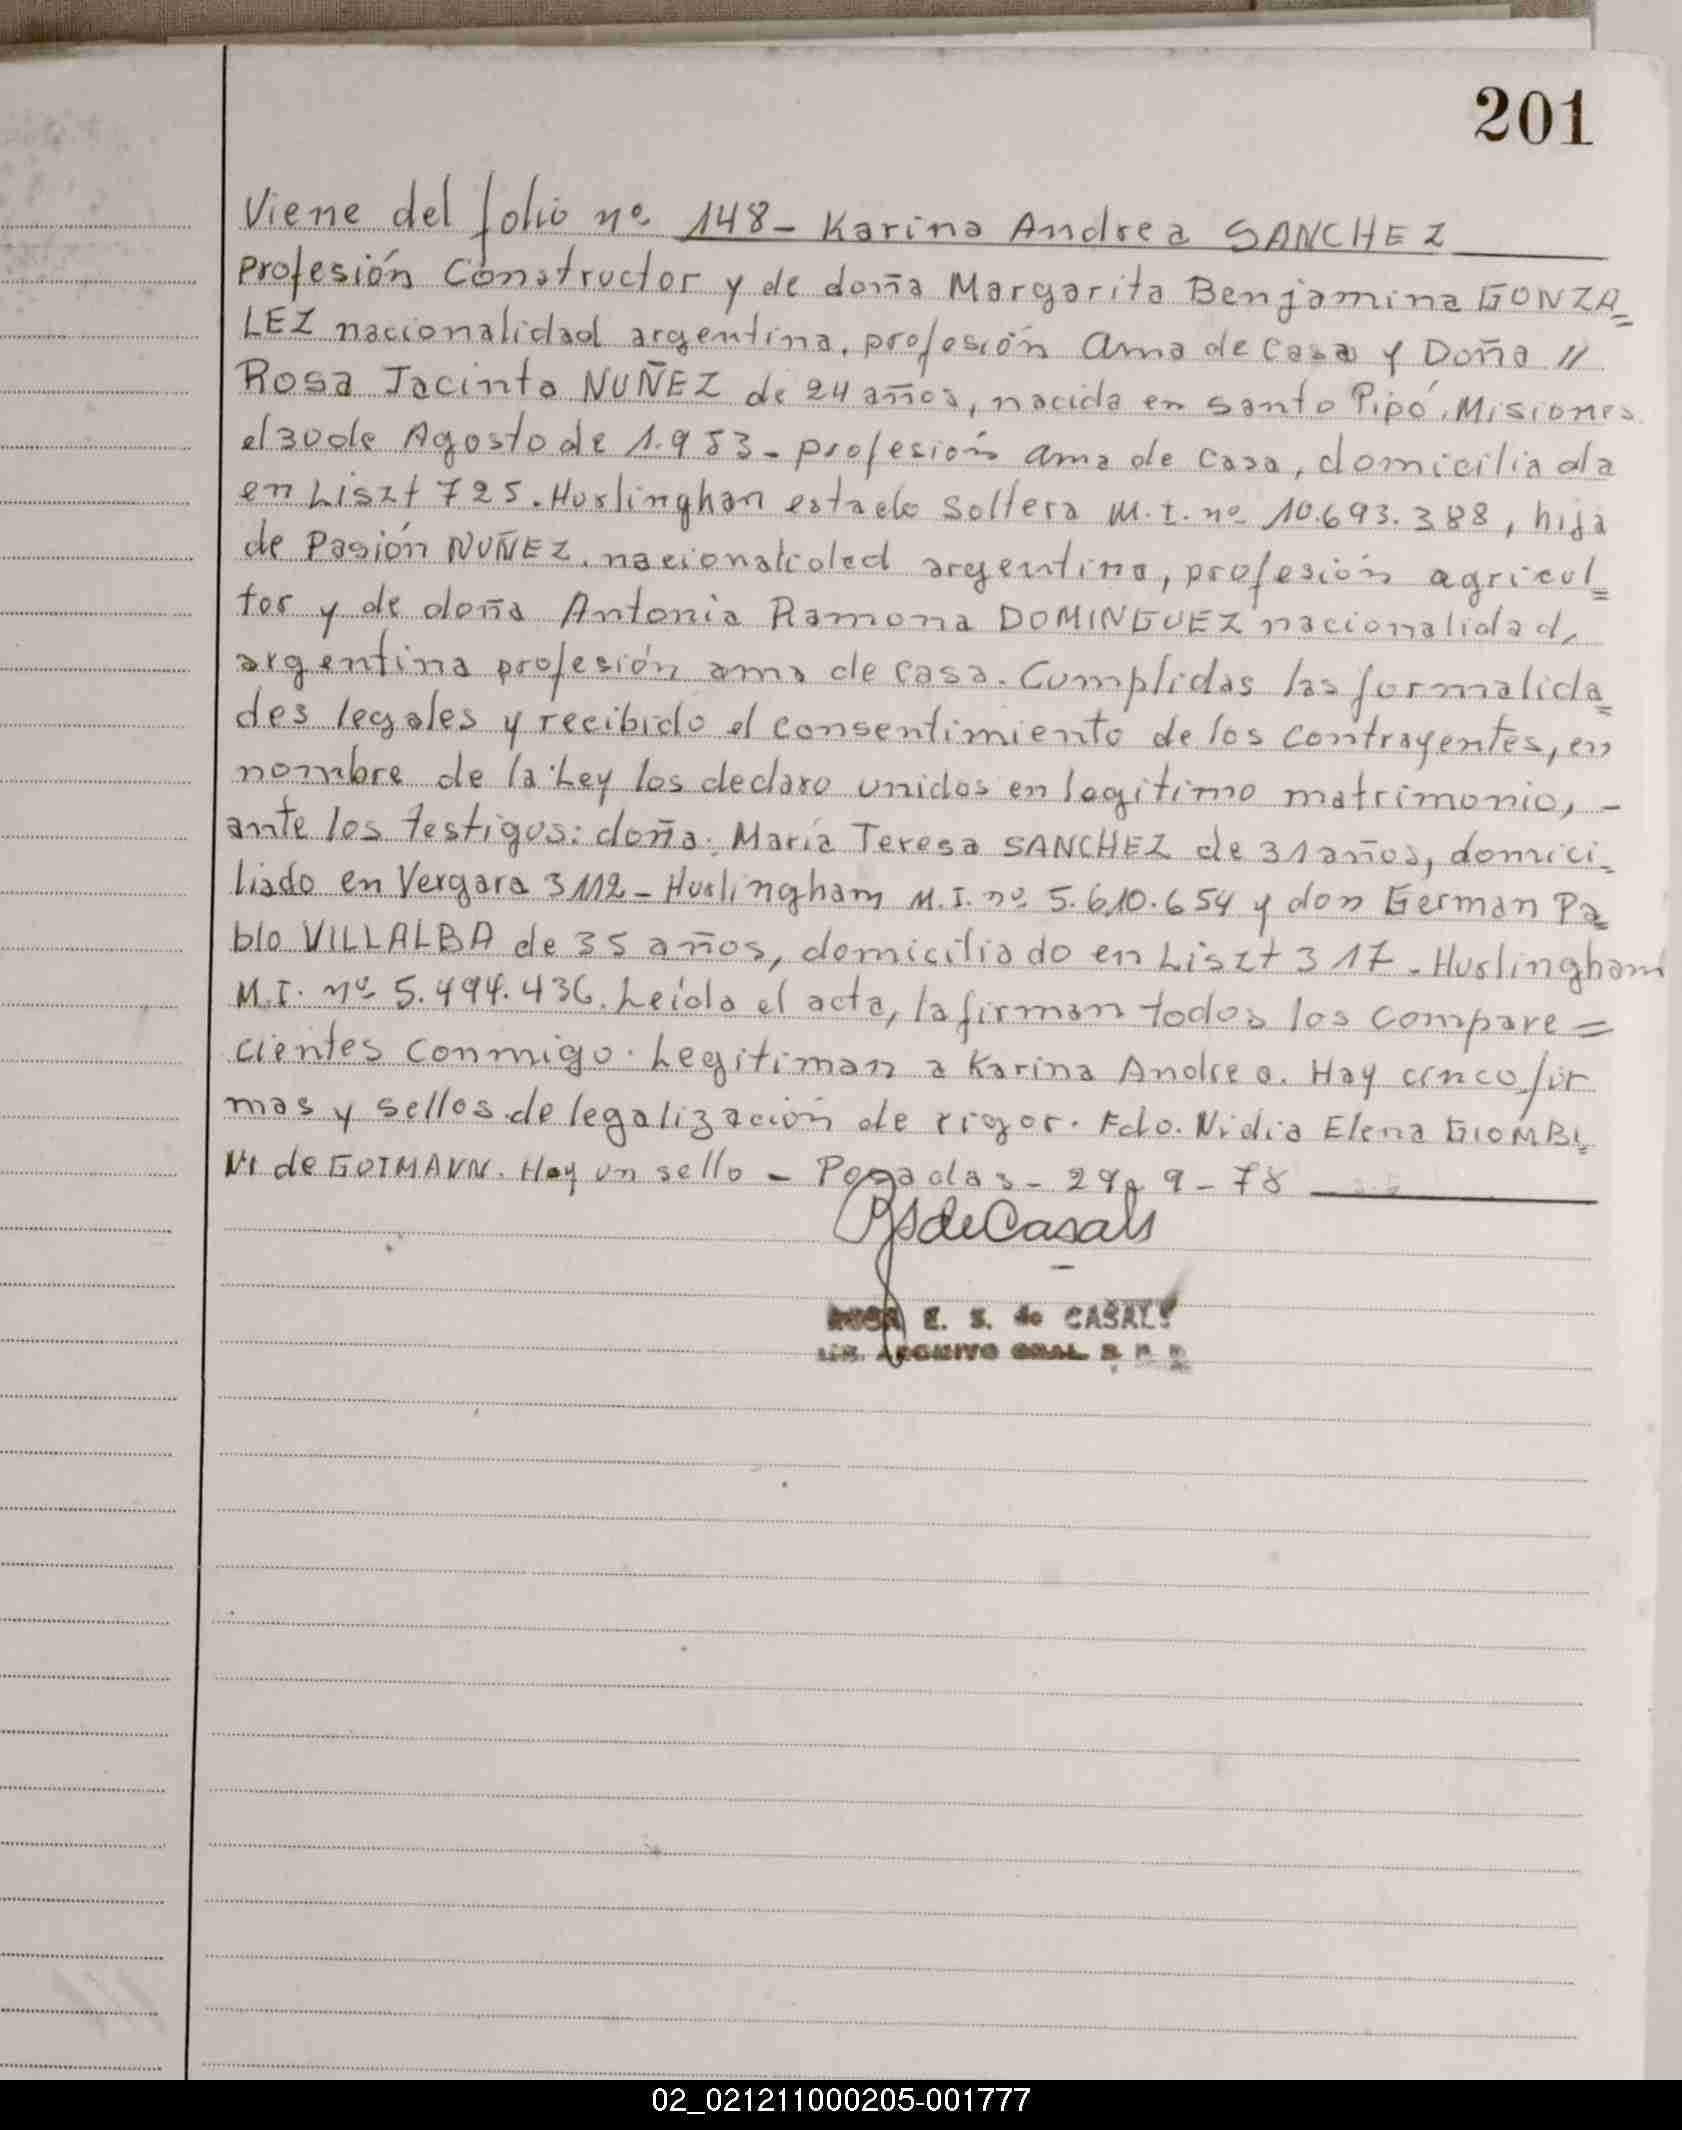 201
Viene del folio nº 148 - Karina Andrea SANCHEZ
Profesión Constructor y de doña Margarita Benjamina GONZA=
LEZ nacionalidad argentina, profesión Ama de Casa y Doña //
Rosa Jacinta NUÑEZ de 24 años, nacida en Santo Pipó, Misiones
el 30 de Agosto de 1.953 - profesión ama de casa, domiciliada
en Liszt 725. Hurlinghan estado Soltera M.I. nº 10.693.388, hija
de Pasión NUÑEZ, nacionalidad argentina, profesión agricul=
tor y de doña Antonia Ramona DOMINGUEZ nacionalidad,
argentina profesión ama de casa. Cumplidas las formalida=
des legales y recibido el consentimiento de los contrayentes, en
nombre de la Ley los declaro unidos en legitimo matrimonio, -
ante los testigos: doña: María Teresa SANCHEZ de 31 años, domici-
liado en Vergara 3112 - Hurlingham M.I. nº 5.610.654 y don German Pa=
blo VILLALBA de 35 años, domiciliado en Liszt 317 - Hurlingham
M.I. nº 5.494.436. Leída el acta, la firman todos los compare=
cientes conmigo. Legitiman a Karina Andrea. Hay cinco fir
mas y sellos de legalización de rigor. Fdo. Nidia Elena GIOMBI=
NI de GOTMANN. Hay un sello - Posadas - 29 - 9 - 78
RSdeCasals
ROSA E. S. de CASALS
ARCHIVO GRAL R. P. P.
02_021211000205-001777